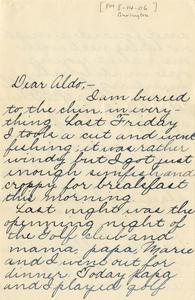 [PM 5-14-06]
Burlington
Dear Aldo,—
I am buried
to the chin in every-
thing. Last Friday
I took a cut and went
fishing; it was rather
windy but I got just
inough sunfish and
croppy for breakfast
this morning.
Last night was the
openning night of
the Golf Club and
mama, papa, Marie
and I went out for
dinner. Today papa
and I played golf